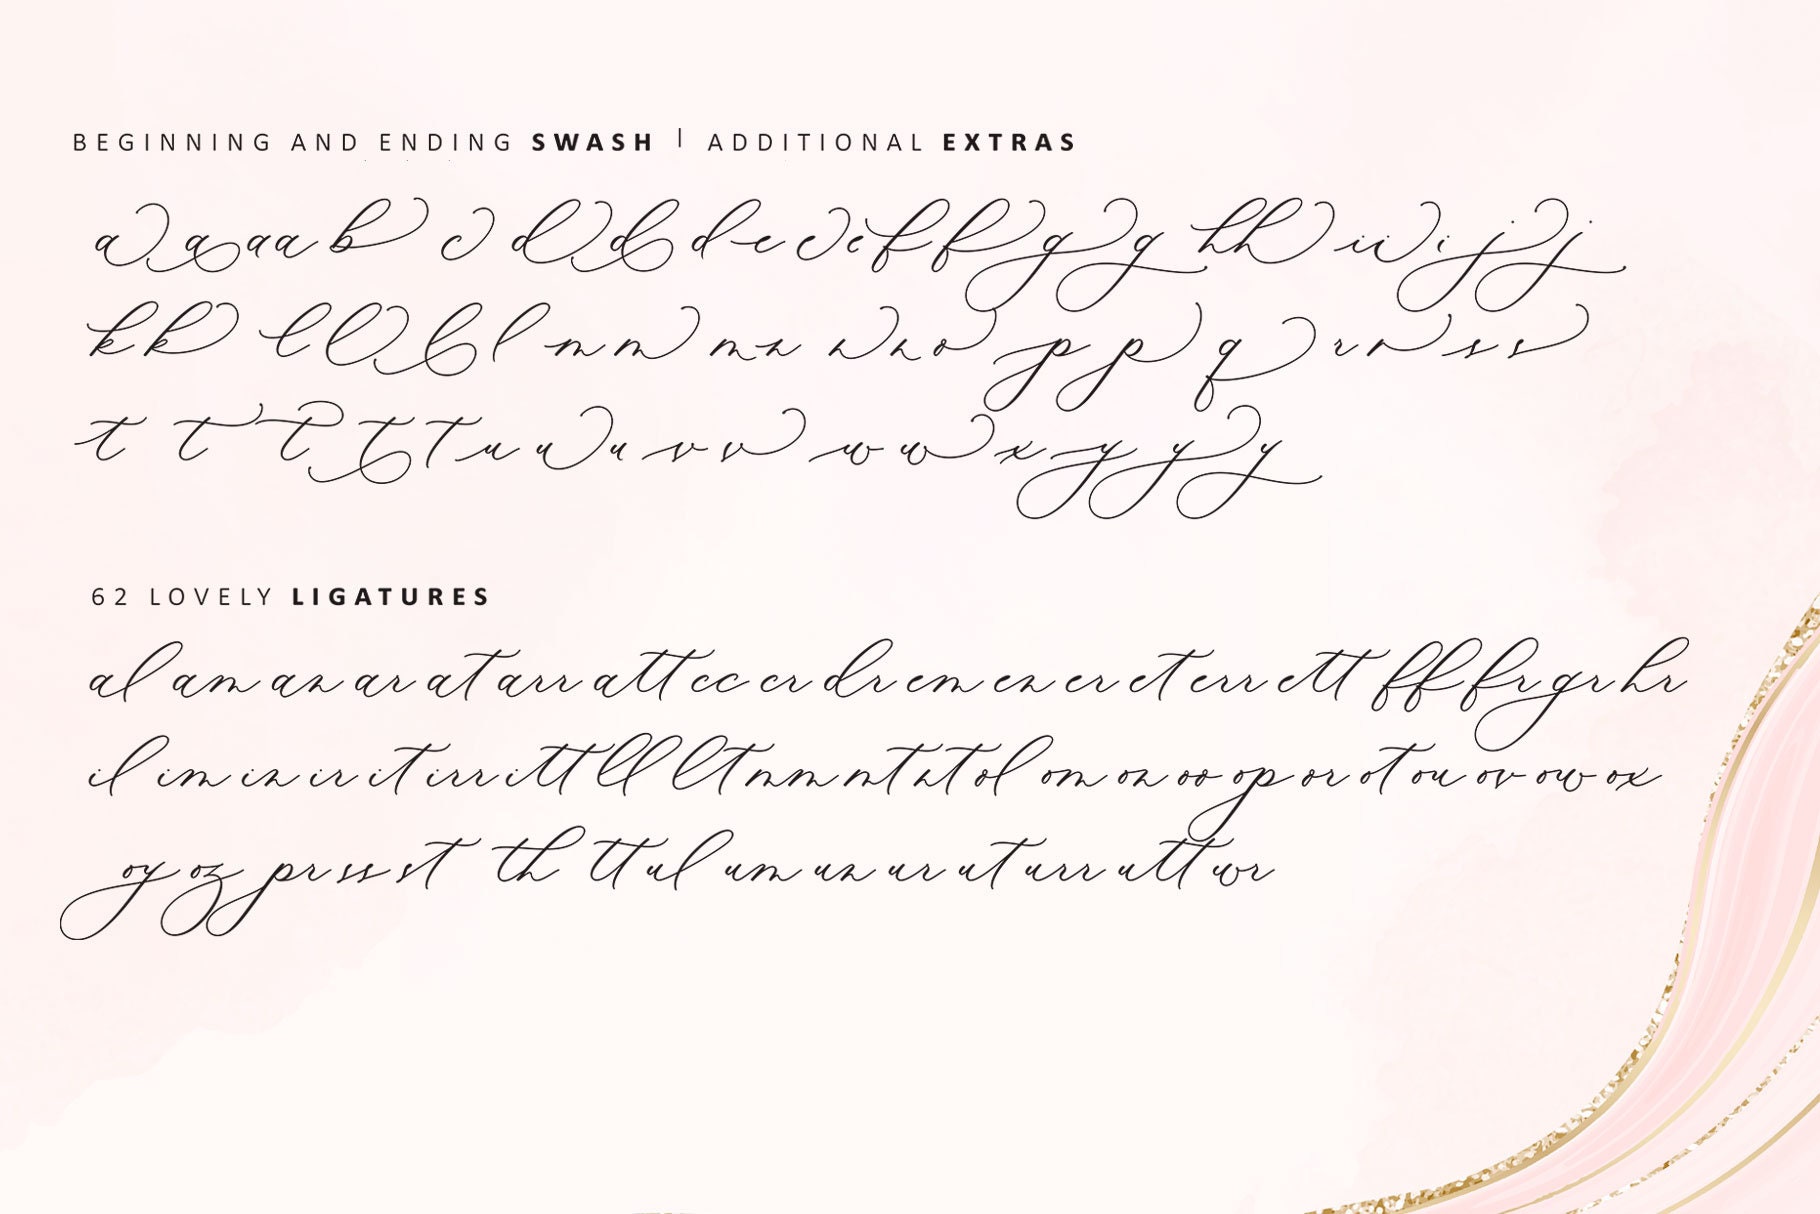 BEGINNING AND ENDING SWASH | ADDITIONAL EXTRAS
a a a a b c d d d e e e f f g g h h i i i j j
k k l l l l m m m n n n o p p q r r s s
t t t t t u u u v v w w x y y y
62 LOVELY LIGATURES
al am an ar at arr att cc cr dr em en er et err ett ff fr gr hr
il im in ir it irr itt ll lt mm nt nt ol om on oo op or ot ou ov ow ox
oy oz pr ss st th tt ul um un ur ut urr utt wr